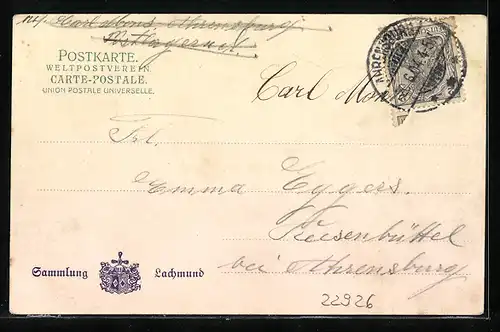 Carl Mons Ahrensburg
Postlagernd
POSTKARTE.
WELTPOSTVEREIN.
CARTE-POSTALE.
UNION POSTALE UNIVERSELLE.
Carl Mons
Frl.
Emma Eggers.
Kiesenbüttel
bei Ahrensburg
Sammlung Lachmund
22926